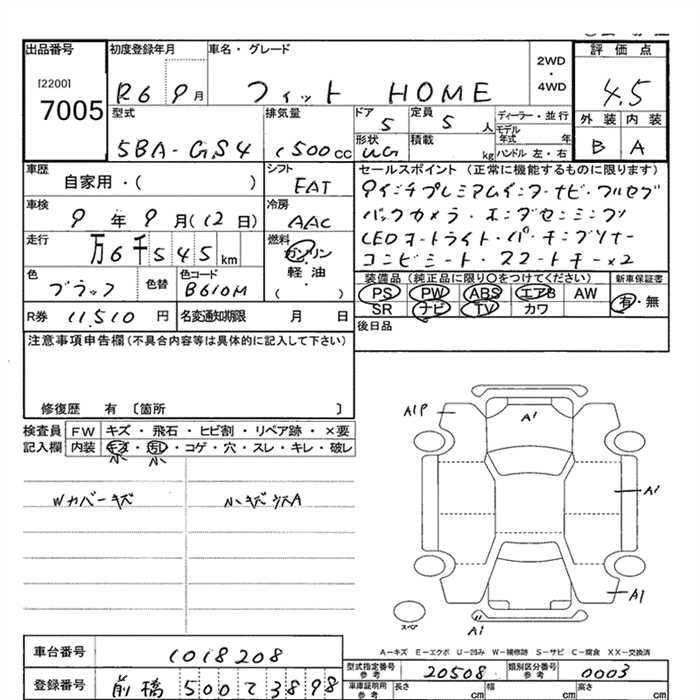 出品番号 初度登録年月 車名・グレード 評価点
[2200] 2WD
7005 R6 9月 フィット HOME ・ 4WD 4.5
型式 排気量 ドア 定員 ディーラー・並行 外装 内装
5BA-GS4 1500cc 5 5人 モデル年式 年
形状 積載 kg ハンドル 左・右 B A
車歴 シフト セールスポイント (正常に機能するものに限ります)
自家用・( ) FAT 9インチプレミアムインターナビ・フルセグ
車検 冷房 バックカメラ・ホンダセンシング
9年9月(12日) AAC LEDオートライト・パーキングソナー
走行 燃料 コンビシート・スマートキー×2
万6千545km ガソリン
軽・油
( )
色 色替 色コード 装備品(純正品に限り○をつけてください) 新車保証書
ブラック B610M PS PW ABS エアB AW 有・無
R券 11,510円 名変通知期限 月 日 SR ナビ TV カワ
後日品
注意事項申告欄(不具合内容等は具体的に記入して下さい)
修復歴 有 〔箇所 〕
検査員 FW キズ・飛石・ヒビ割・リペア跡・×要
記入欄 内装 キズ・汚レ・コゲ・穴・スレ・キレ・破レ
小 小
Wカバーキズ 小キズ
A1P A1
A1
A1
スペア A1
A-キズ E-エクボ U-凹み W-補修跡 S-サビ C-腐食 XX-交換済
車台番号 1018208
型式指定番号 参考 20508 類別区分番号 参考 0003
登録番号 前橋500て3898
車庫証明用 参考 長さ cm 幅 cm 高さ cm